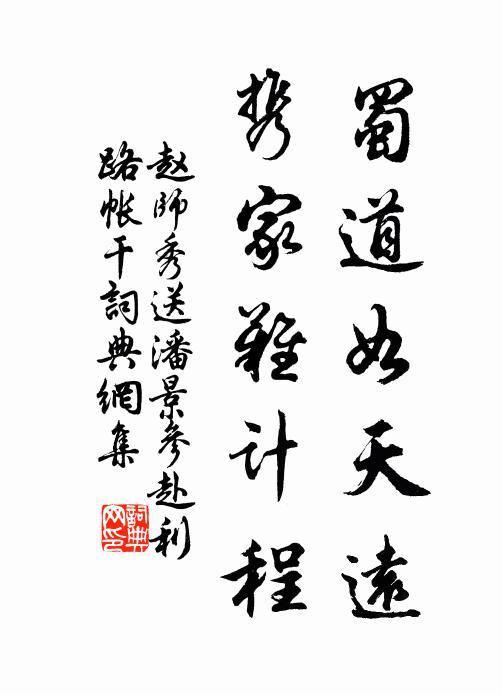 蜀道如天遠
携家難计程
赵師秀送潘景參赴利
路帐干詞典網集
詞典网印